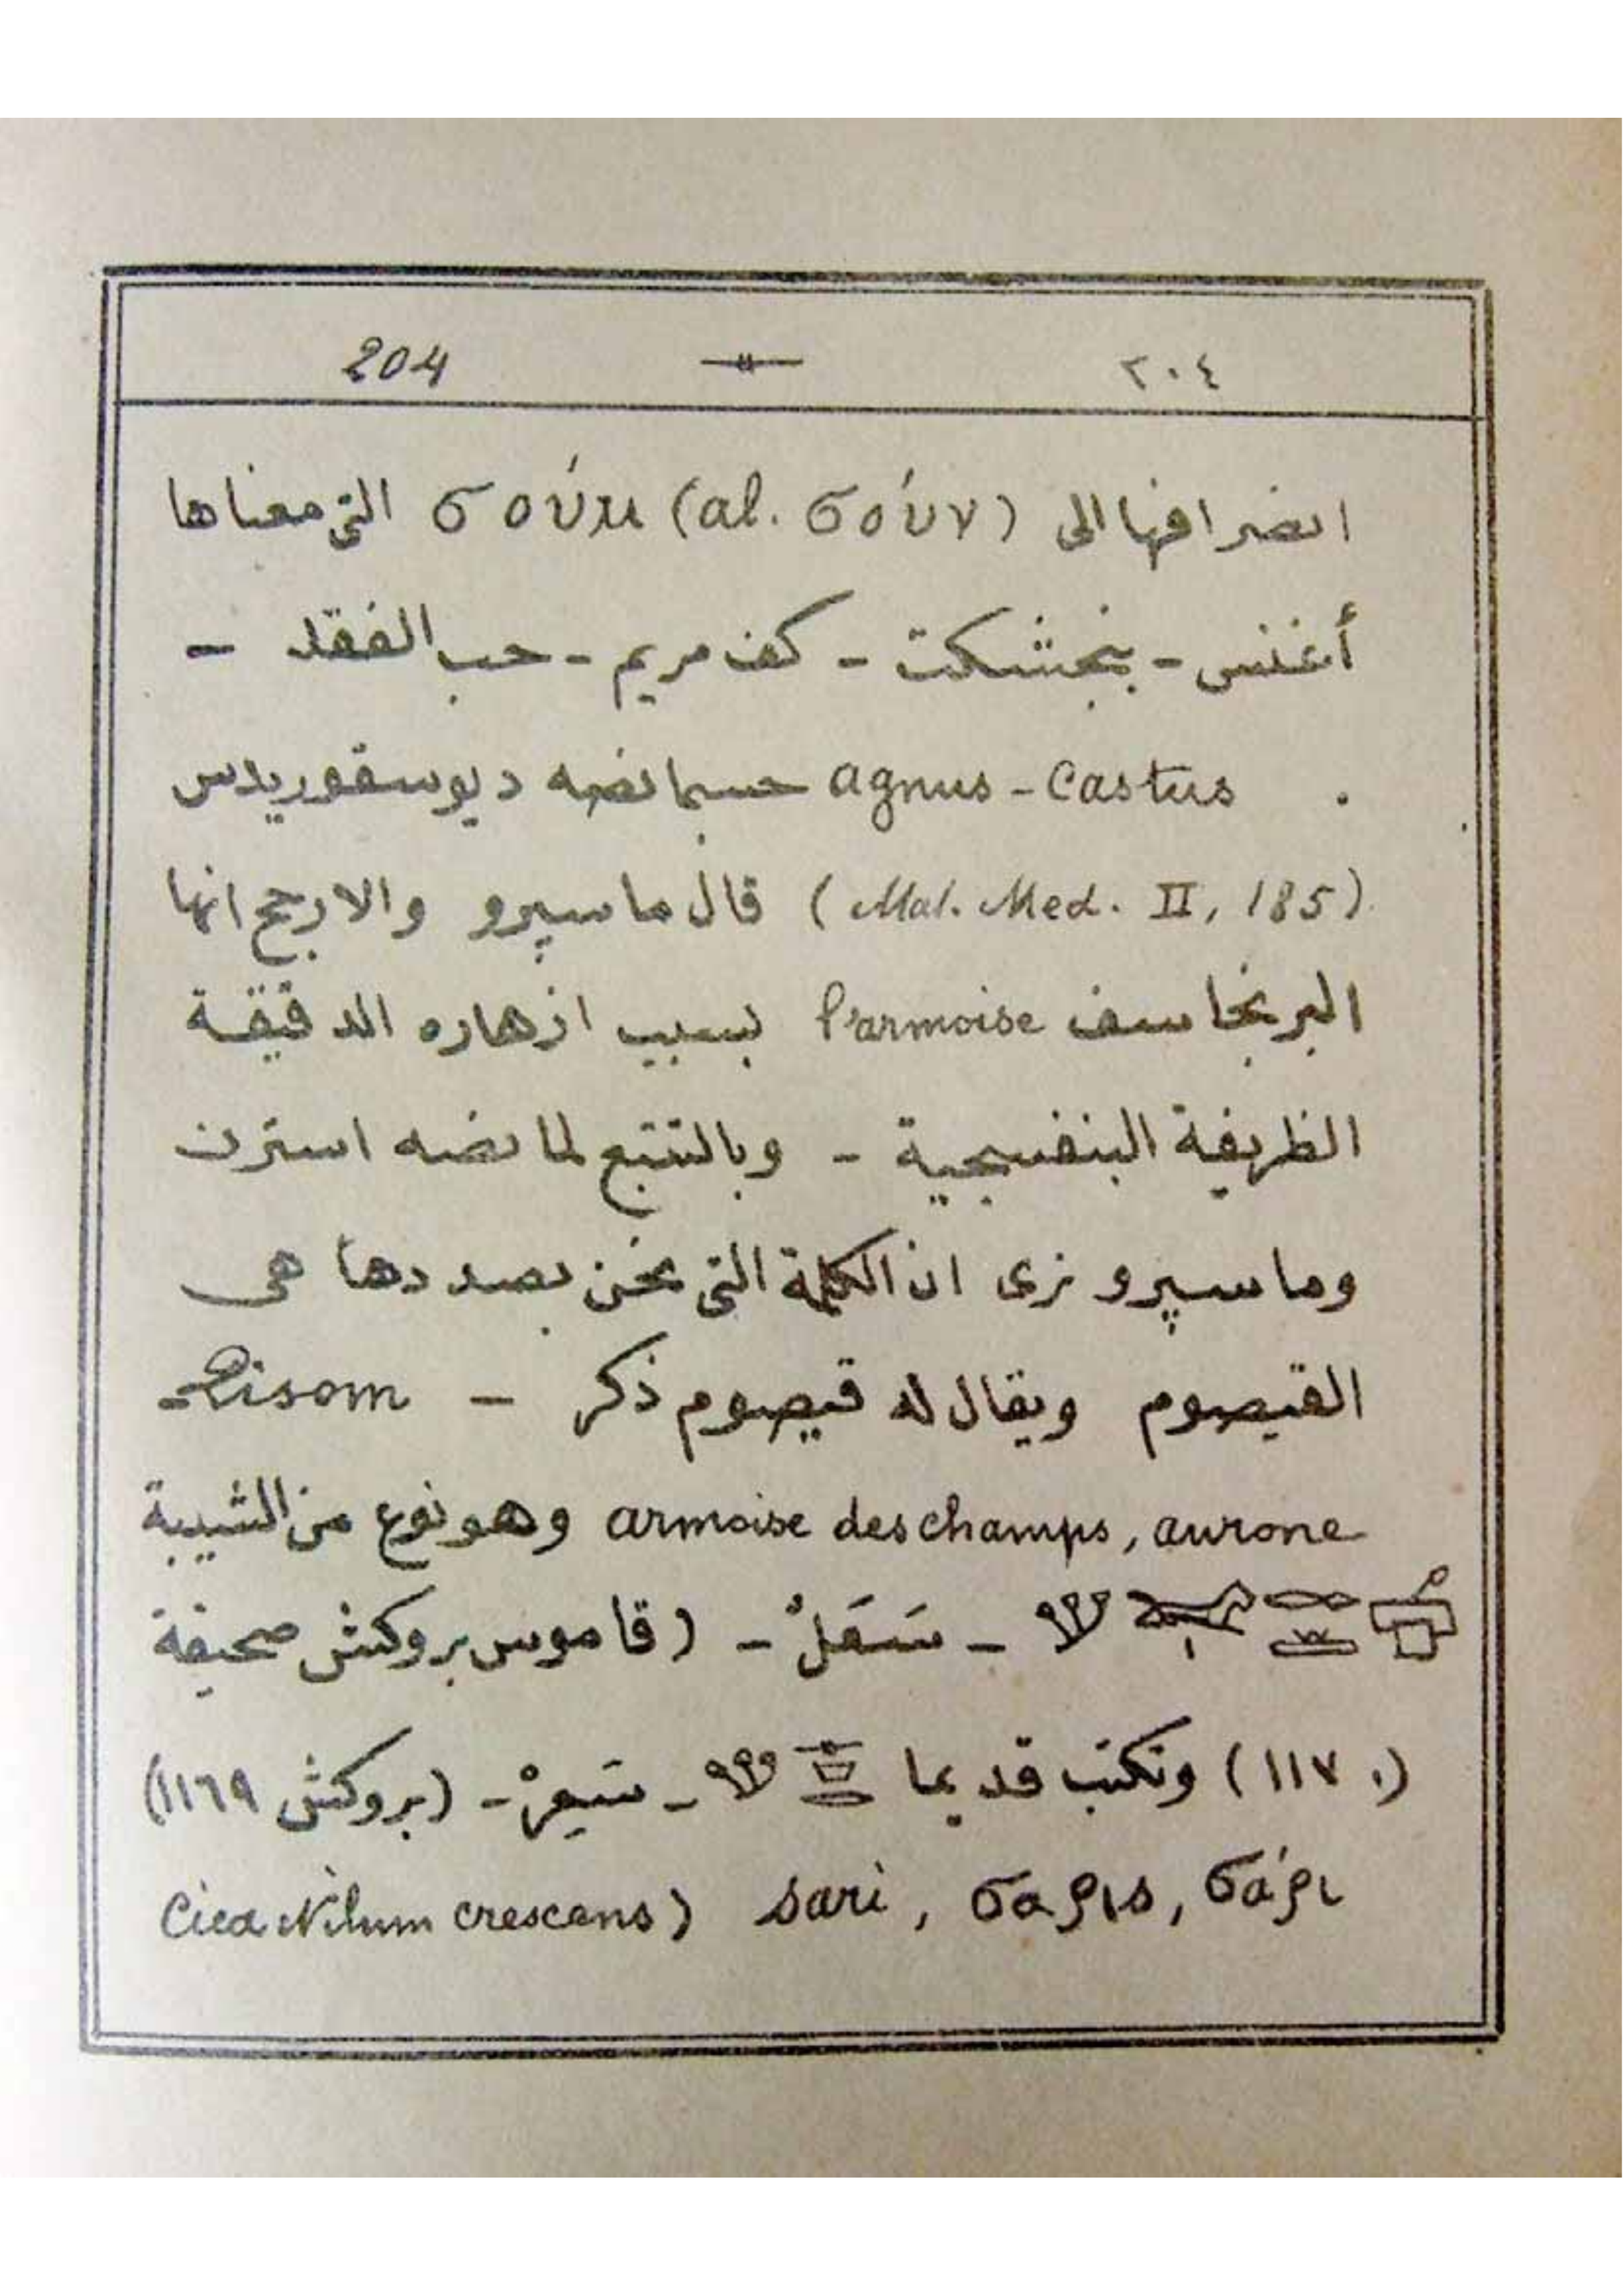 204 — ٢٠٤
انصرافها الى σούμ (al. σούν) التى معناها
أغنس - بنجشكت - كف مريم - حب الفقد -
agnus-castus حسبما نصه ديوسقوريدس
(Mat. Med. II, 185) قال ماسپرو والارجح انها
البرنجاسف l'armoise بسبب ازهاره الدقيقة
الظريفة البنفسجية - وبالتتبع لما نصه استرن
وماسپرو نرى ان الكلمة التى نحن بصددها هى
القيصوم ويقال له قيصوم ذكر -
armoise des champs, aurone وهو نوع من الشيبة
- سَعَلْ - (قاموس بروكش صحيفة
١١٧٠) وتكتب قديما - سَعِرْ - (بروكش ١١٦٩)
σάρι, σαρις, sari (Nilum crescens